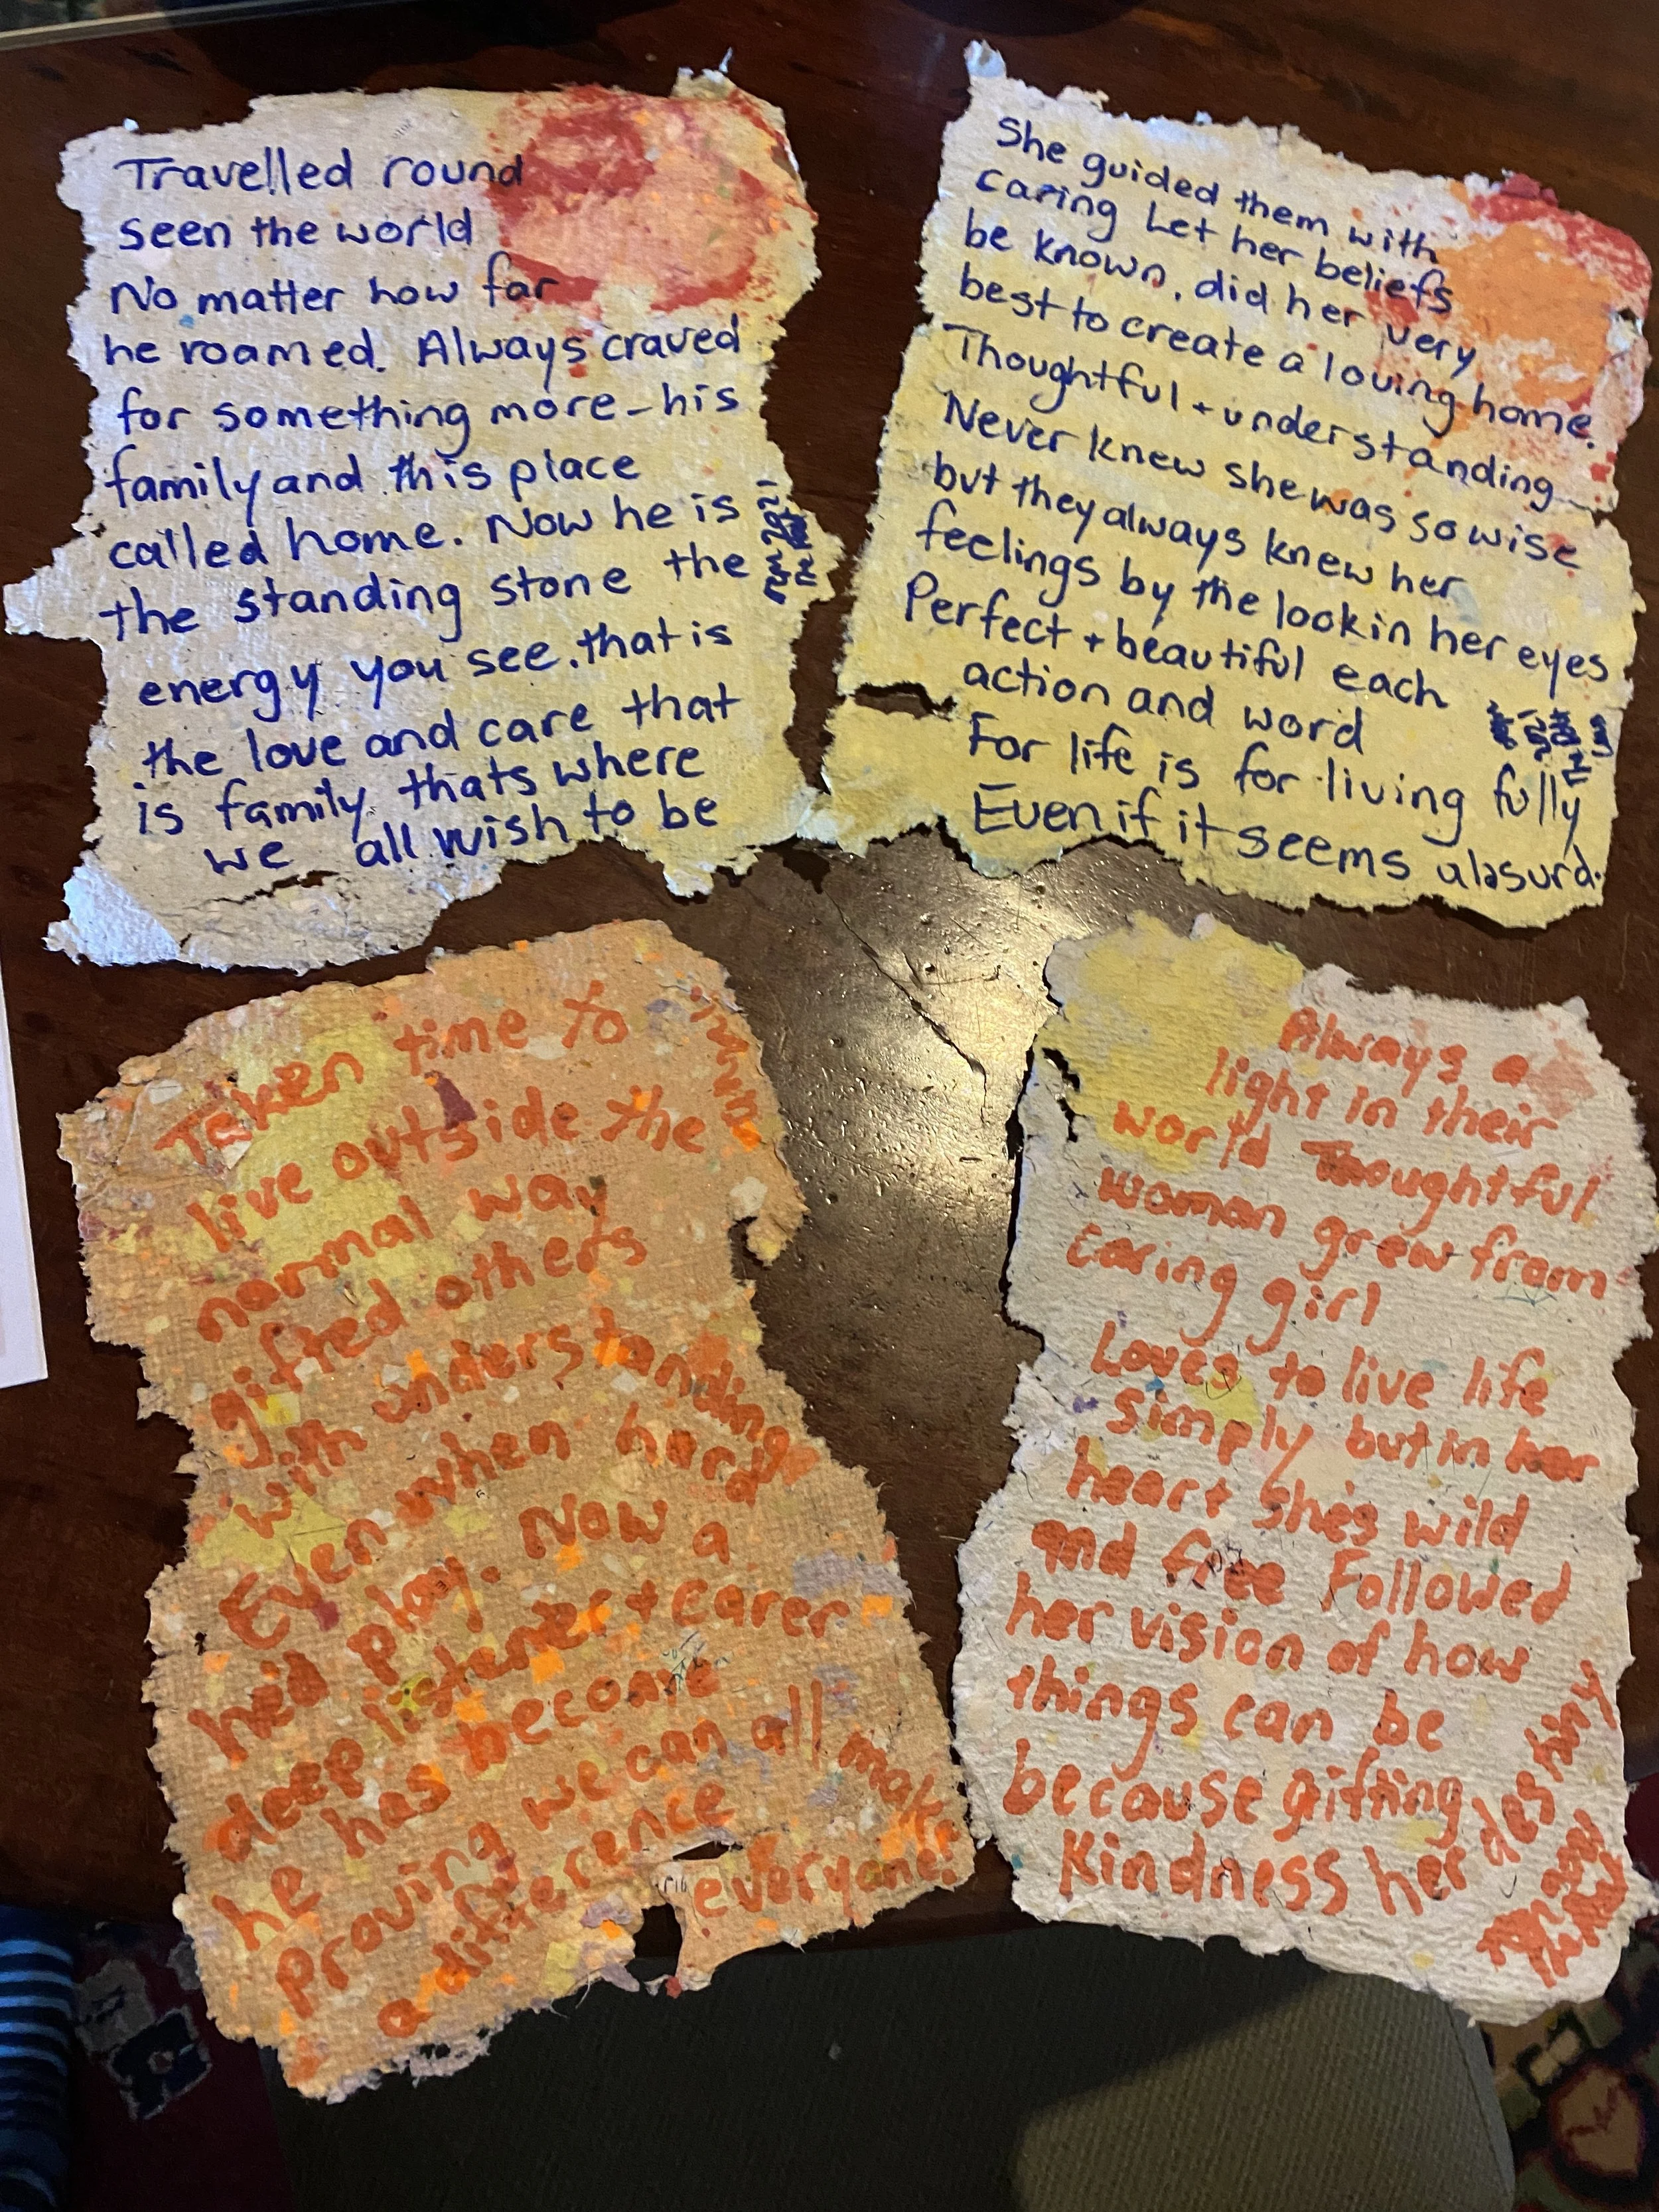 Travelled round
seen the world
No matter how far
he roamed. Always craved
for something more - his
family and this place
called home. Now he is
the standing stone the
energy you see. that is
the love and care that
is family thats where
we all wish to be
She guided them with
caring Let her beliefs
be known, did her very
best to create a loving home.
Thoughtful + understanding
Never knew she was so wise
but they always knew her
feelings by the look in her eyes
Perfect + beautiful each
action and word
For life is for living fully
Even if it seems absurd.
Taken time to
live outside the
normal way
gifted others
with understanding
Even when hard
he'd play. Now a
deep listener + carer
he has become
Proving we can all make
a difference
everyone.
Always a
light in their
world Thoughtful
woman grew from
caring girl
Loves to live life
simply but in her
heart she's wild
and free Followed
her vision of how
things can be
because gifting
Kindness her destiny